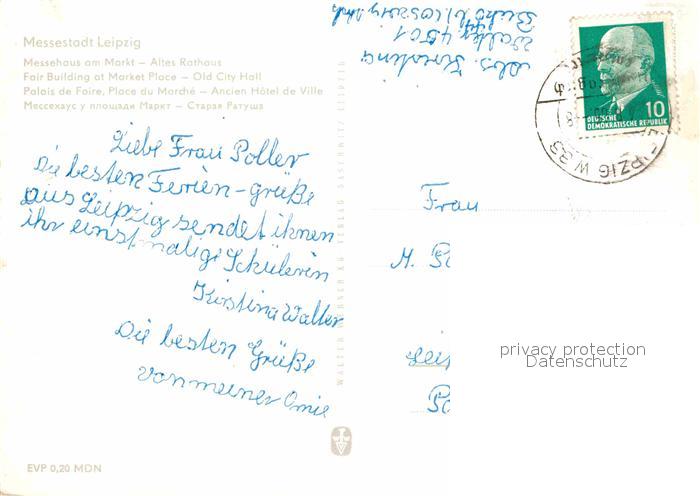 Messestadt Leipzig
Messehaus am Markt – Altes Rathaus
Fair Building at Market Place – Old City Hall
Palais de Foire, Place du Marché – Ancien Hôtel de Ville
Мессехаус у площади Маркт – Старая Ратуша
Liebe Frau Poller
Die besten Ferien-grüße
aus Leipzig sendet ihnen
ihr einstmalige Schülerin
Kirstina Walter
Die besten Grüße
von meiner Omie
EVP 0,20 MDN
Abs.
Walter
10
DEUTSCHE
DEMOKRATISCHE REPUBLIK
LEIPZIG W 35
Frau
M.
privacy protection
Datenschutz